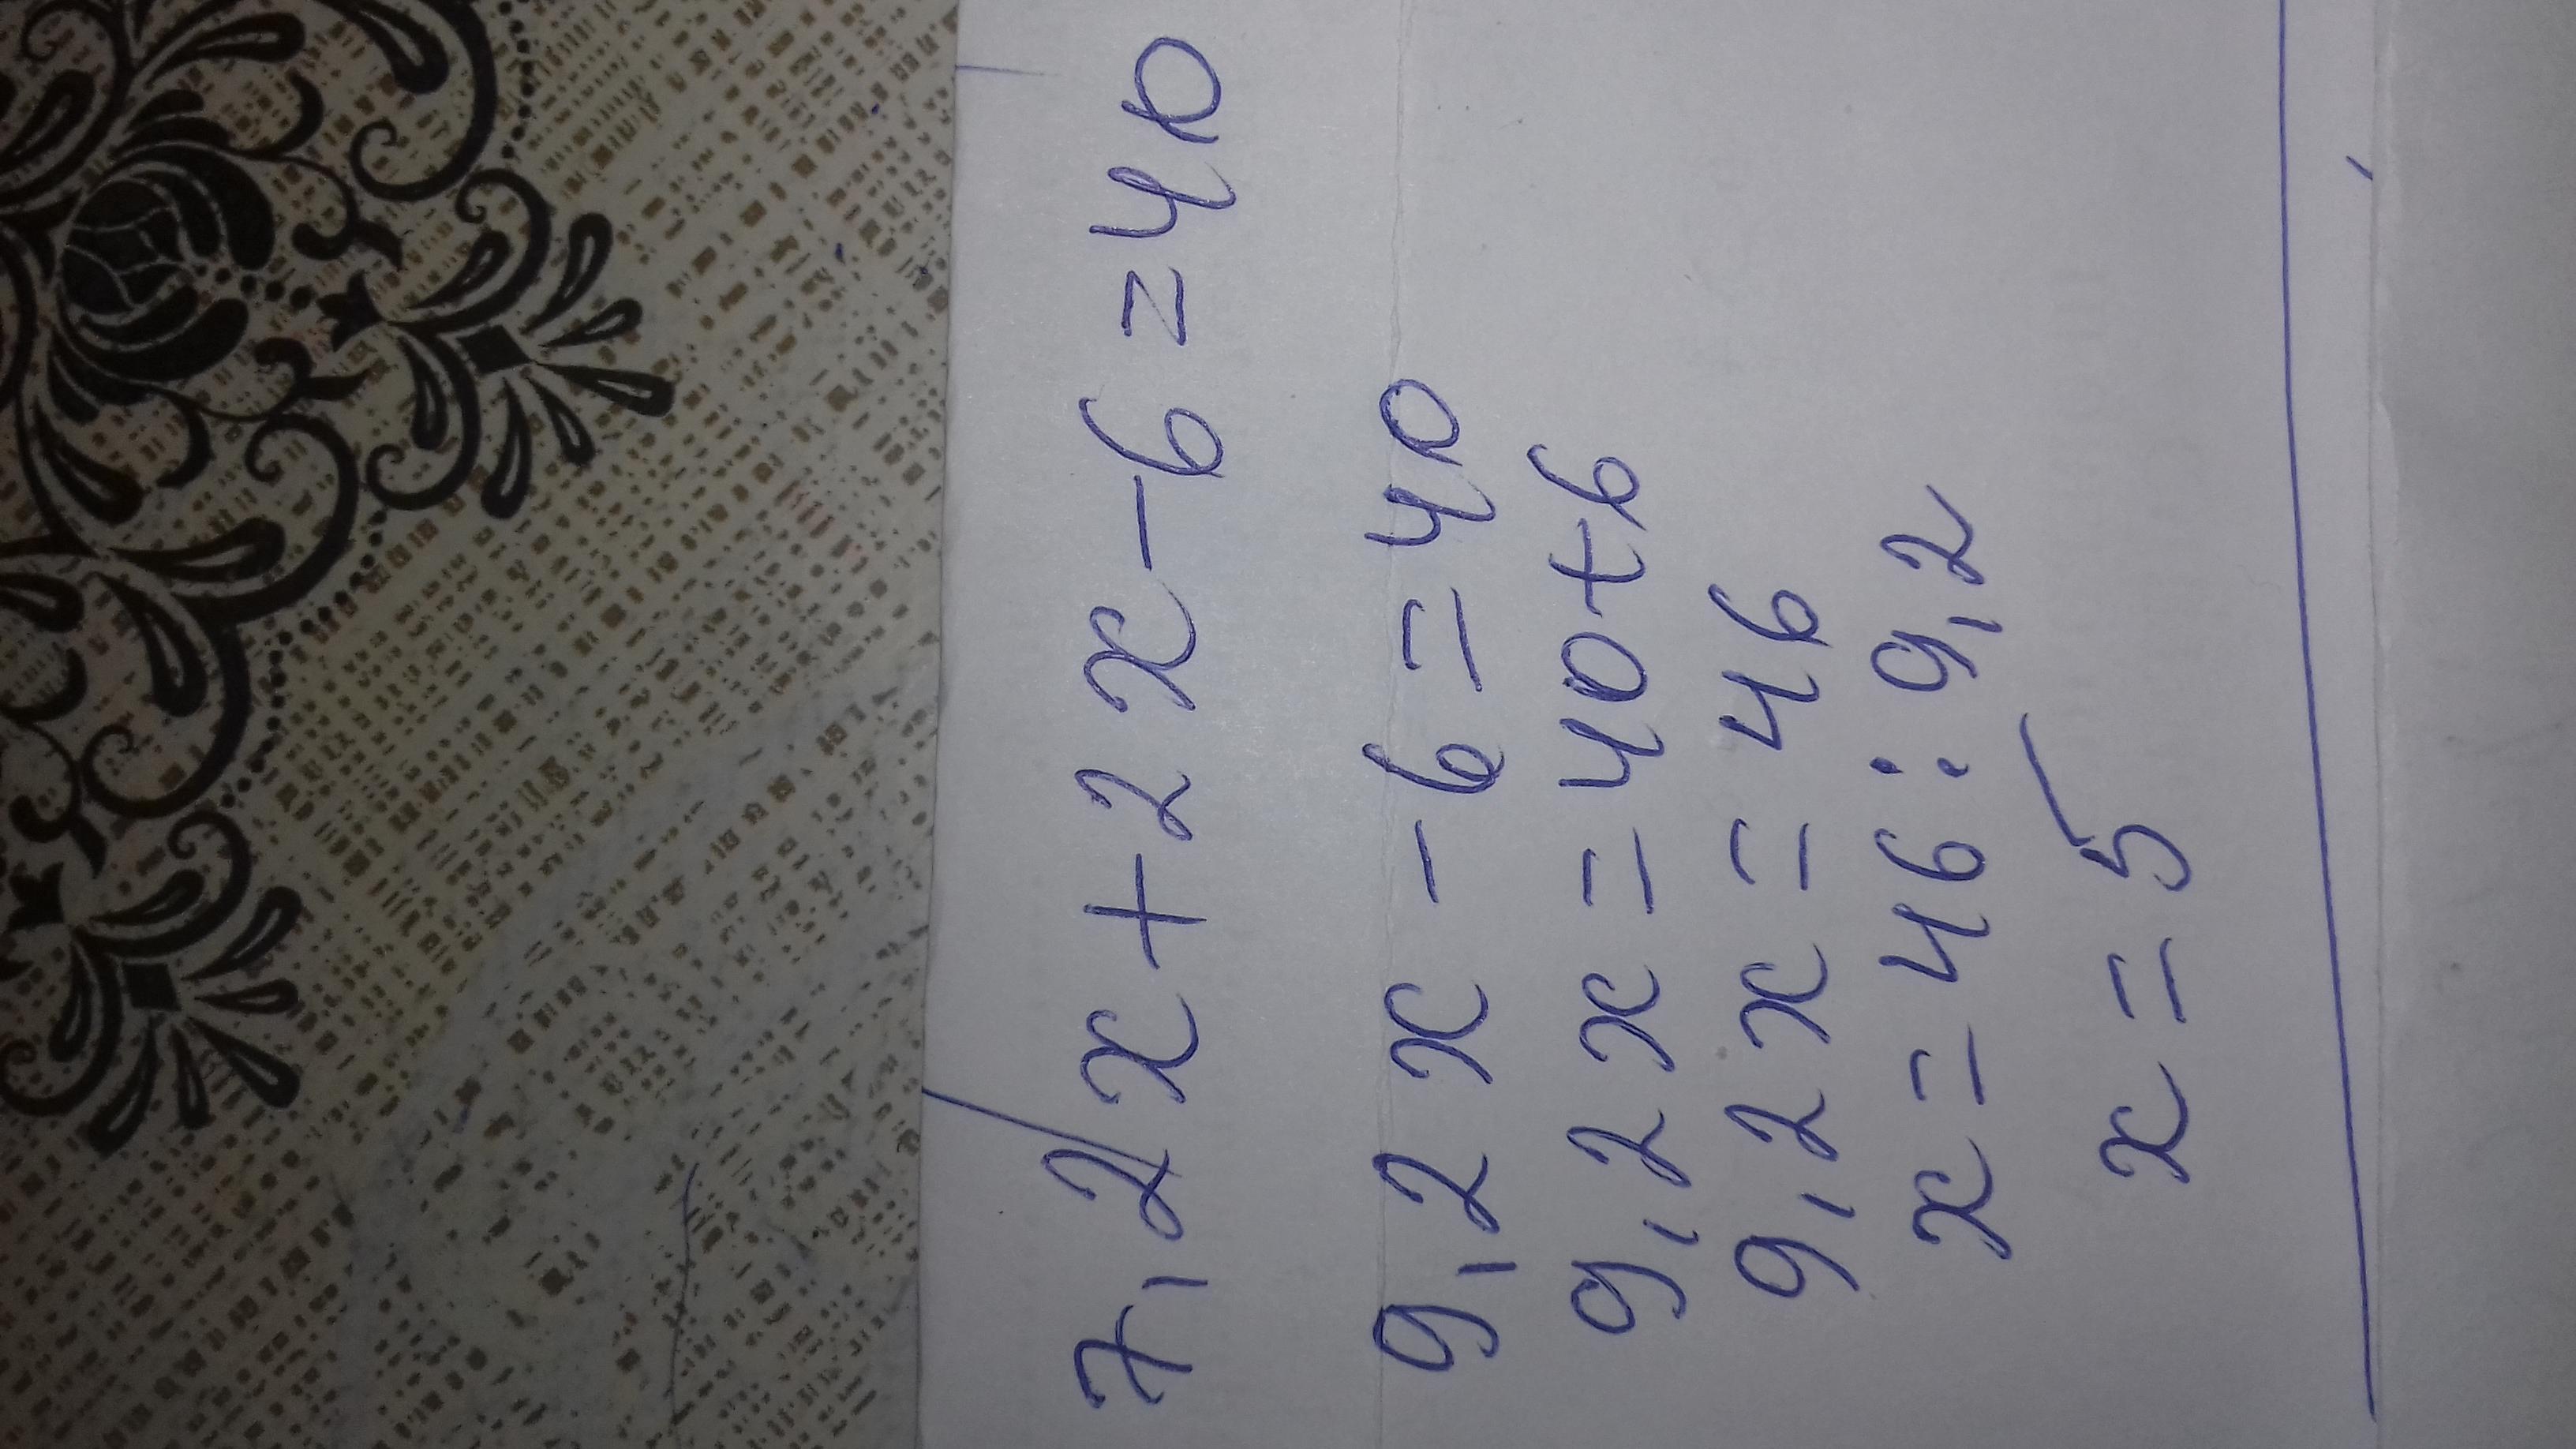 7,2x+2x-6=40
9,2x-6=40
9,2x=40+6
9,2x=46
x=46:9,2
x=5